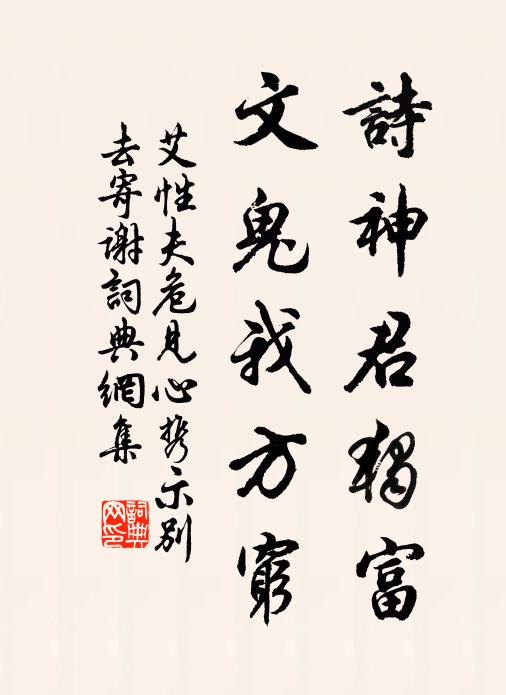 詩神君獨富
文鬼我方窮
艾性夫危見心携示別
去寄謝詞典網集
詞典
网印